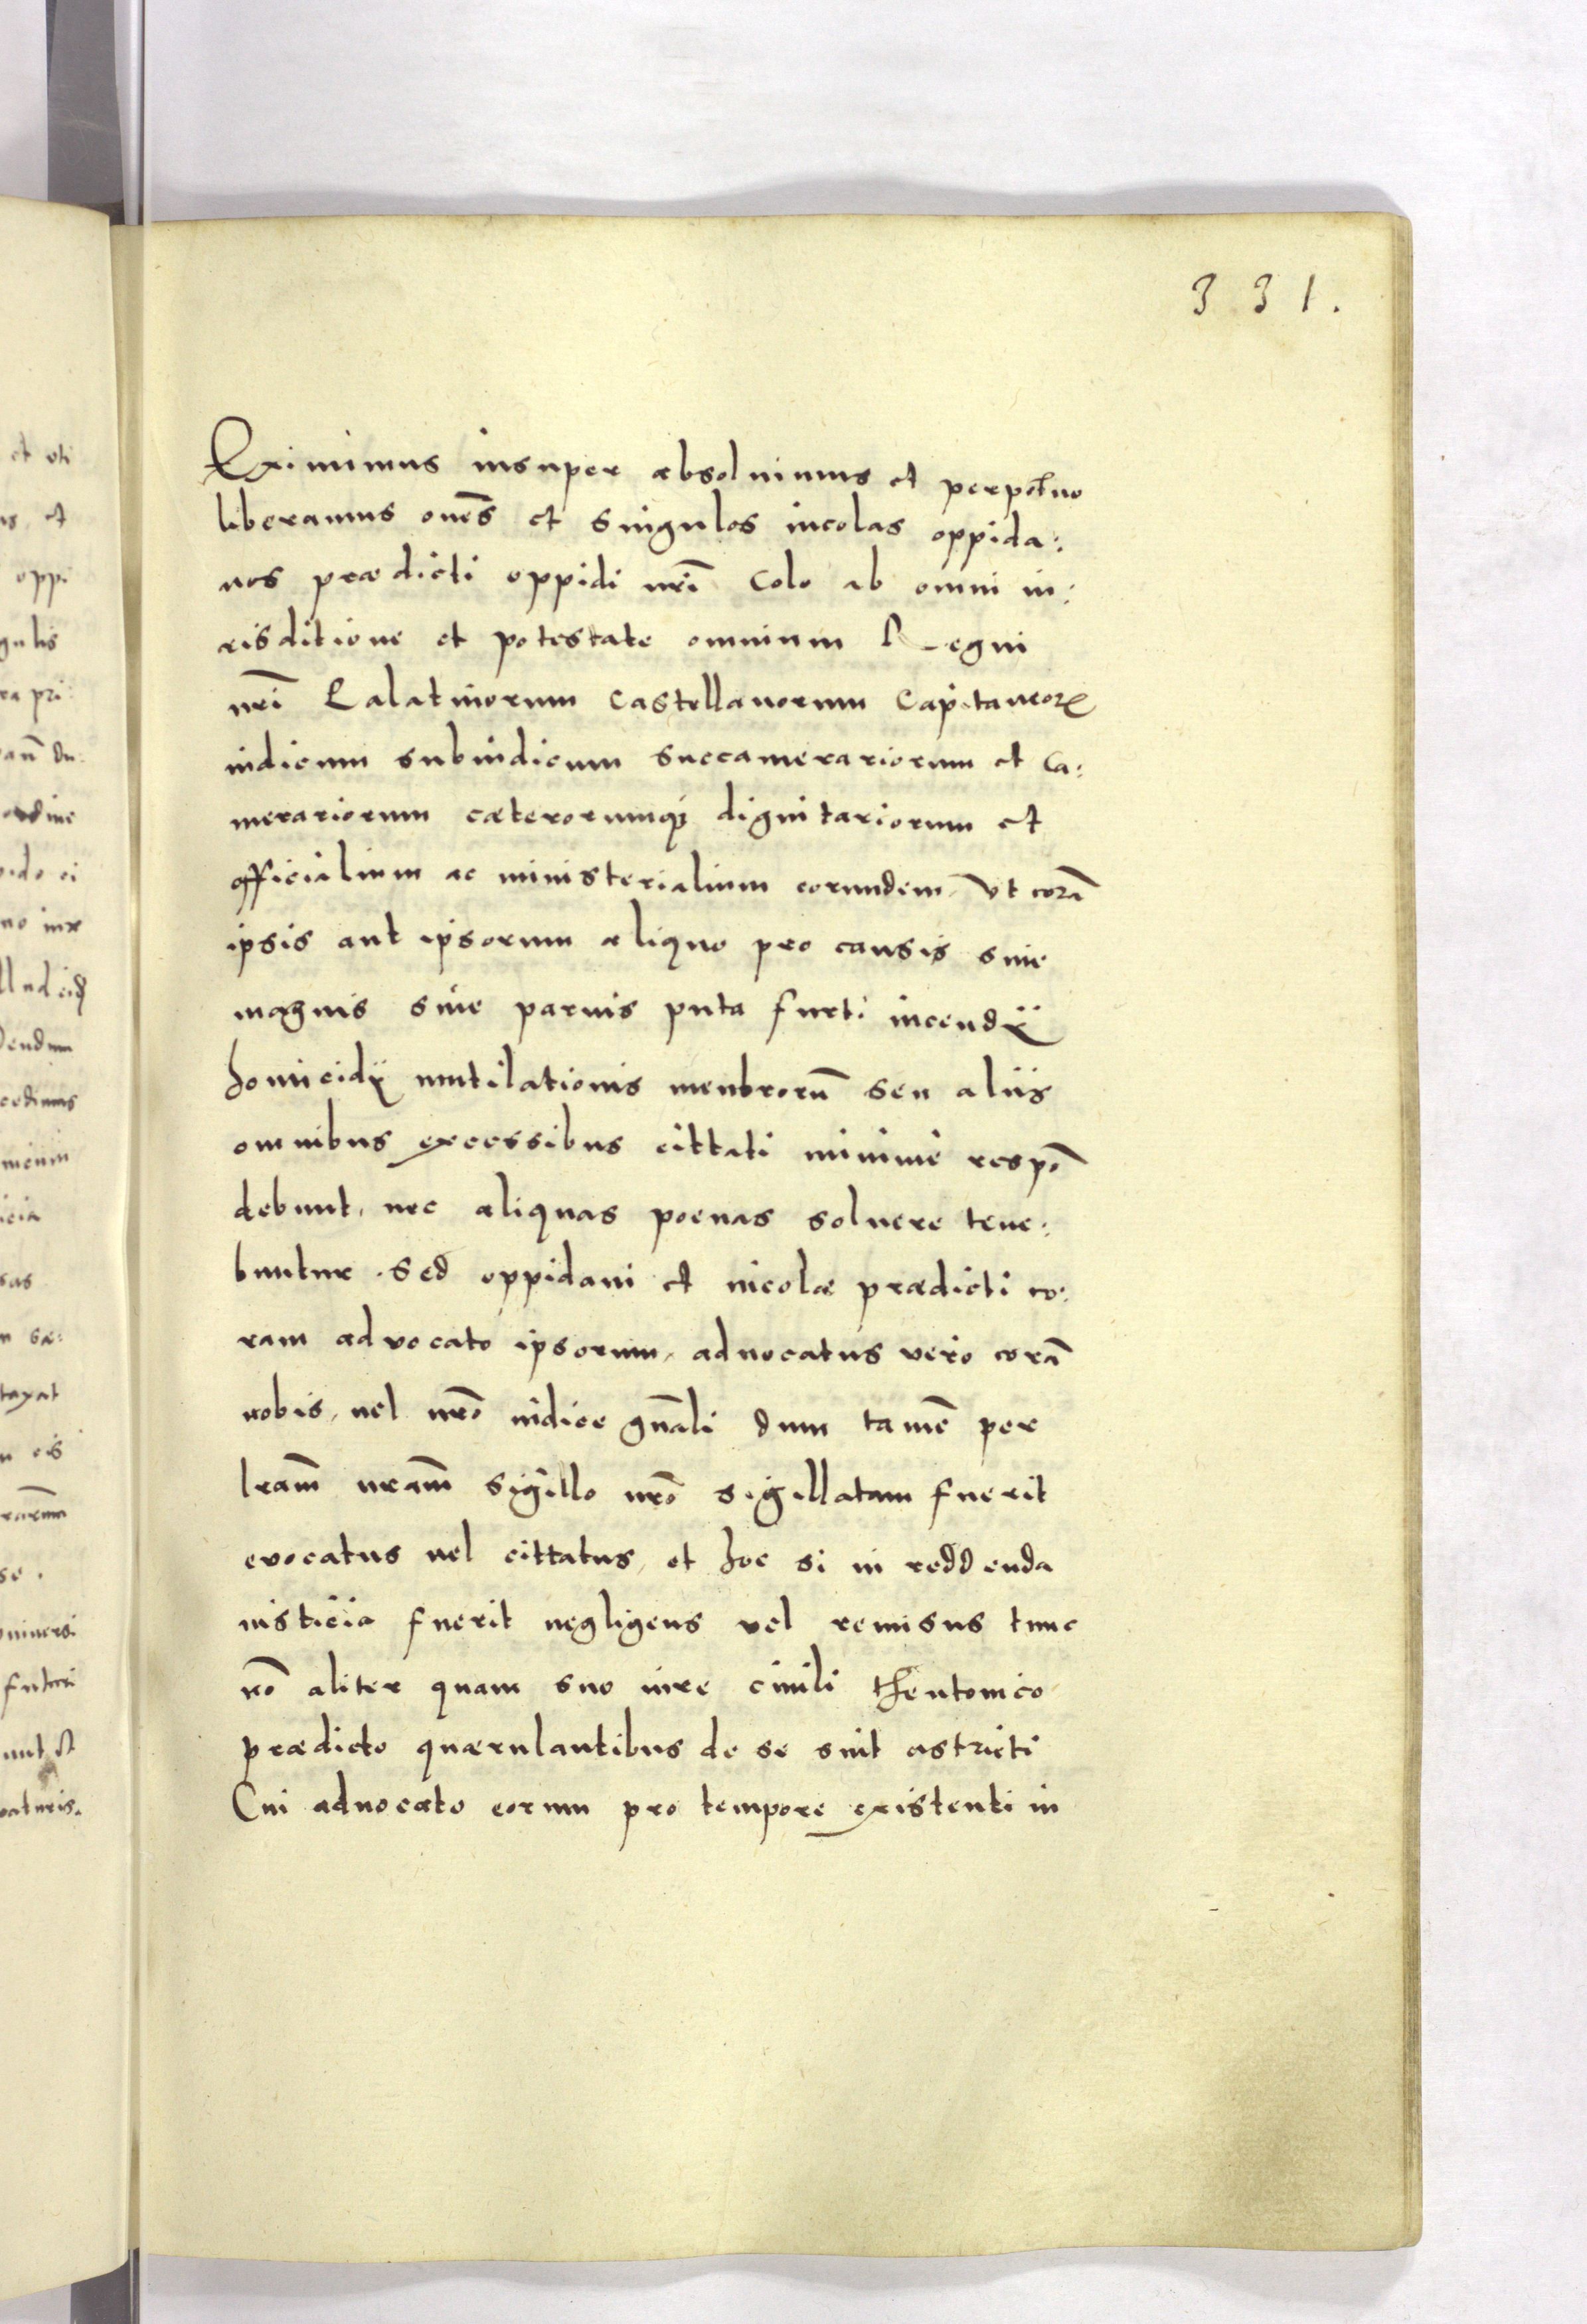 331.
Eximimus insuper absoluimus et perpetuo
liberamus oñes et singulos incolas oppida:
nos prædicti oppidi nr̃i Colo ab omni iu:
risditione et potestate omnium Regni
nr̃i Palatinorum Castellanorum Capitaneorꝝ
iudicum subiudicum succamerariorum et Ca:
merariorum cæterorumqꝫ dignitariorum et
officialium ac ministerialium eorumdem, Vt corã
ipsis aut ipsorum aliquo pro causis siue
magnis siue paruis puta furti incendÿ
homicidÿ mutilationis membrorũ seu aliis
omnibus excessibus cittati minime respõ
debunt, nec aliquas poenas soluere tene:
buntur. Sed oppidani et incolæ prædicti co:
ram advocato ipsorum, aduocatus vero corã
nobis, uel nr̃o iudice gñali dum tamẽ per
lr̃am nr̃am sigillo nr̃o sigillatam fuerit
evocatus uel cittatus, et hoc si in reddenda
iusticia fuerit negligens vel remisus tunc
nõ aliter quam suo iure ciuili theutonico
prædicto quærulantibus de se sint astricti
Cui aduocato eorum pro tempore existenti in
et uti
et
oppi
gulis
ra pri:
du:
ordine
endum
cedimus
sas
taxat
eis
se.
vniuersi
futuri